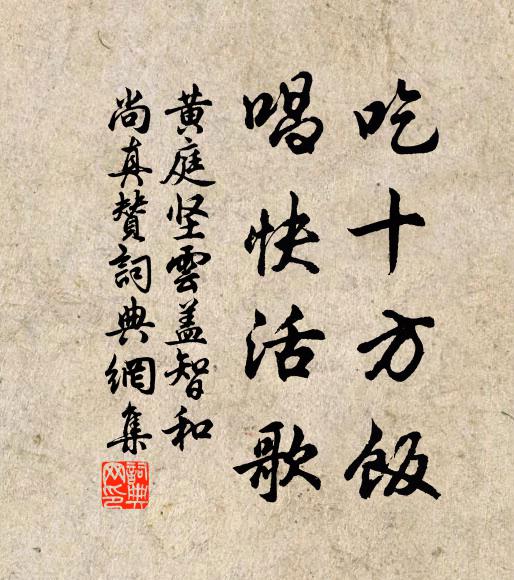 吃十方飯
唱快活歌
黄庭坚雲盖智和
尚真贊詞典網集
詞典网印